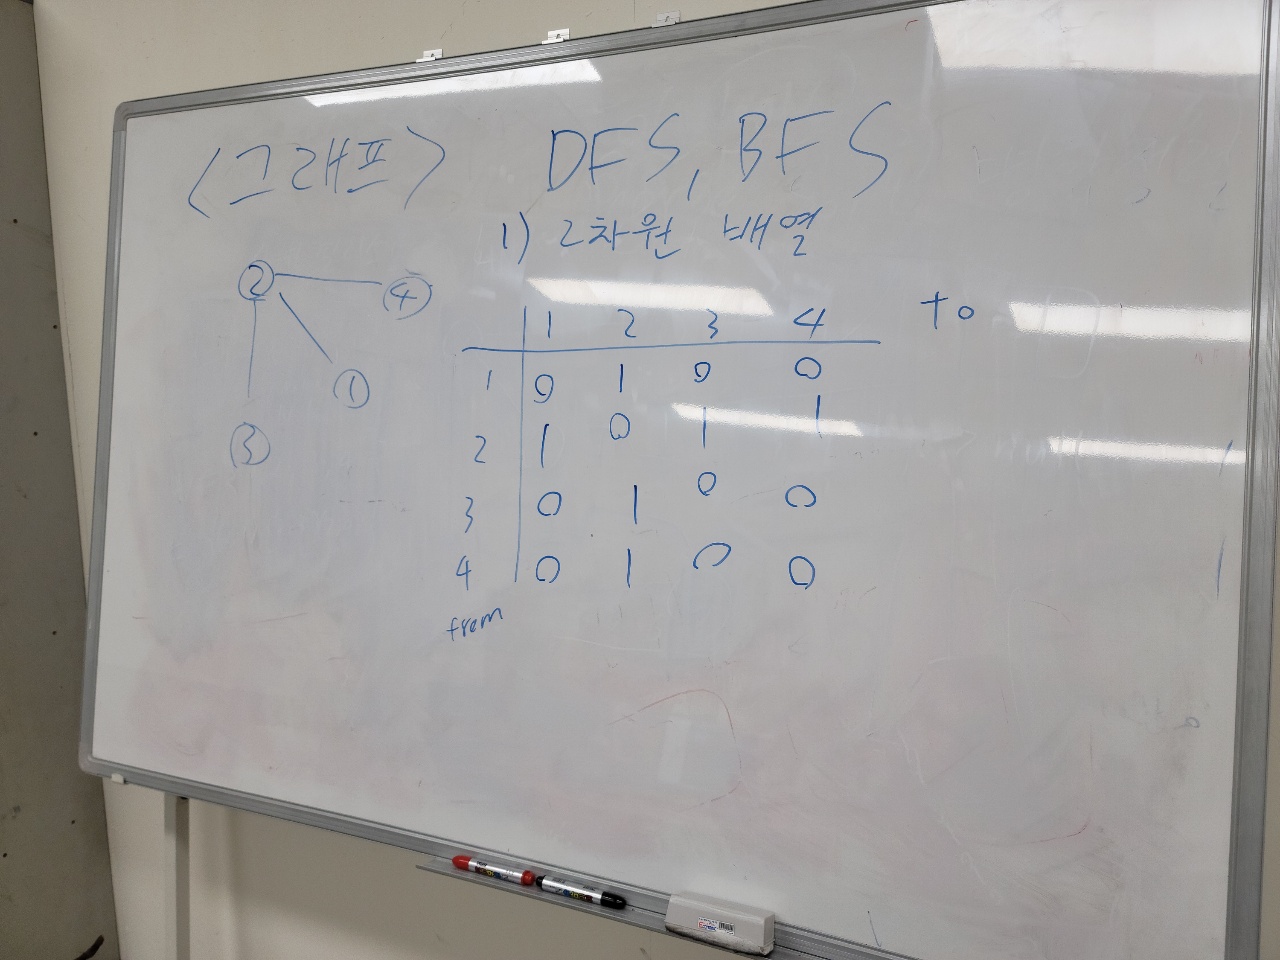 <그래프> DFS, BFS
1) 2차원 배열
2 4
1
3
1 2 3 4 to
1 0 1 0 0
2 1 0 1 1
3 0 1 0 0
4 0 1 0 0
from